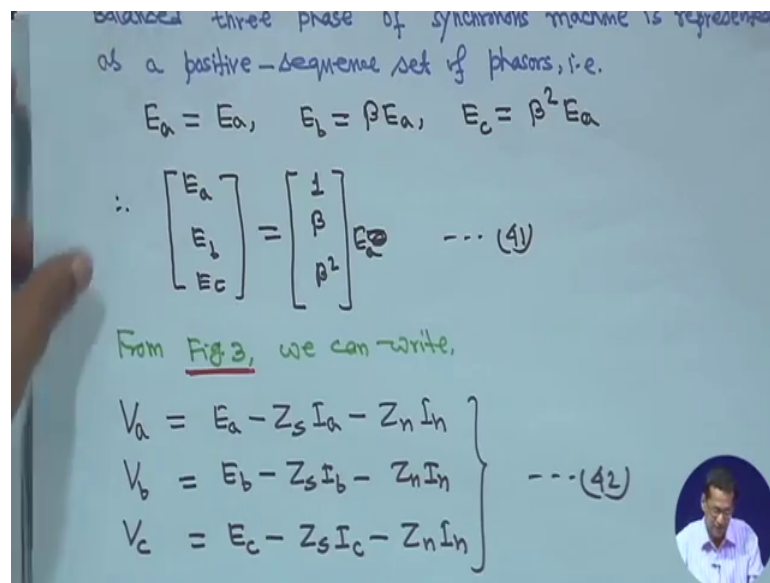 Balanced three phase of synchronous machine is represented
as a positive-sequence set of phasors, i.e.
Ea = Ea, Eb = βEa, Ec = β² Ea
∴ [Ea Eb Ec] = [1 β β²] Ea --- (41)
From Fig.3, we can write,
Va = Ea - Zs Ia - Zn In
Vb = Eb - Zs Ib - Zn In --- (42)
Vc = Ec - Zs Ic - Zn In